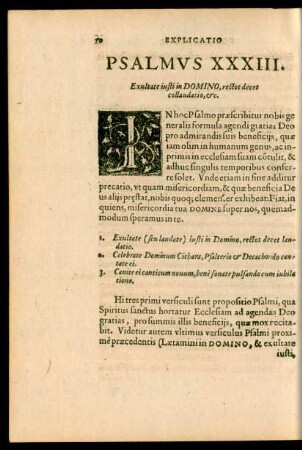 50 EXPLICATIO
PSALMVS XXXIII.
Exultate iusti in DOMINO, rectos decet
collaudatio, &c.
IN hoc Psalmo præscribitur nobis ge
neralis formula agendi gratias Deo
pro admirandis suis beneficijs, quæ
iam olim in humanum genus, ac in-
primis in ecclesiam suam cōtulit, &
adhuc singulis temporibus confer-
re solet. Vnde etiam in fine additur
precatio, vt quam misericordiam, & quæ beneficia De
us alijs prestat, nobis quoq; clemēter exhibeat: Fiat, in
quiens, misericordia tua DOMINE super nos, quemad-
modum speramus in te.
1. Exultate (seu laudate) iusti in Domino, rectos decet lau-
datio.
2. Celebrate Dominum Cithara, Psalterio & Decachordo can-
tate ei.
3. Canite ei canticum nouum, beni sonate pulsando cum iubila
tione.
Hi tres primi versiculi sunt propositio Psalmi, qua
Spiritus sanctus hortatur Ecclesiam ad agendas Deo
gratias, pro summis illis beneficijs, quæ mox recita-
bit. Videtur autem vltimus versiculus Psalmi proxi-
mè præcedentis (Lætamini in DOMINO, & exultate
iusti,